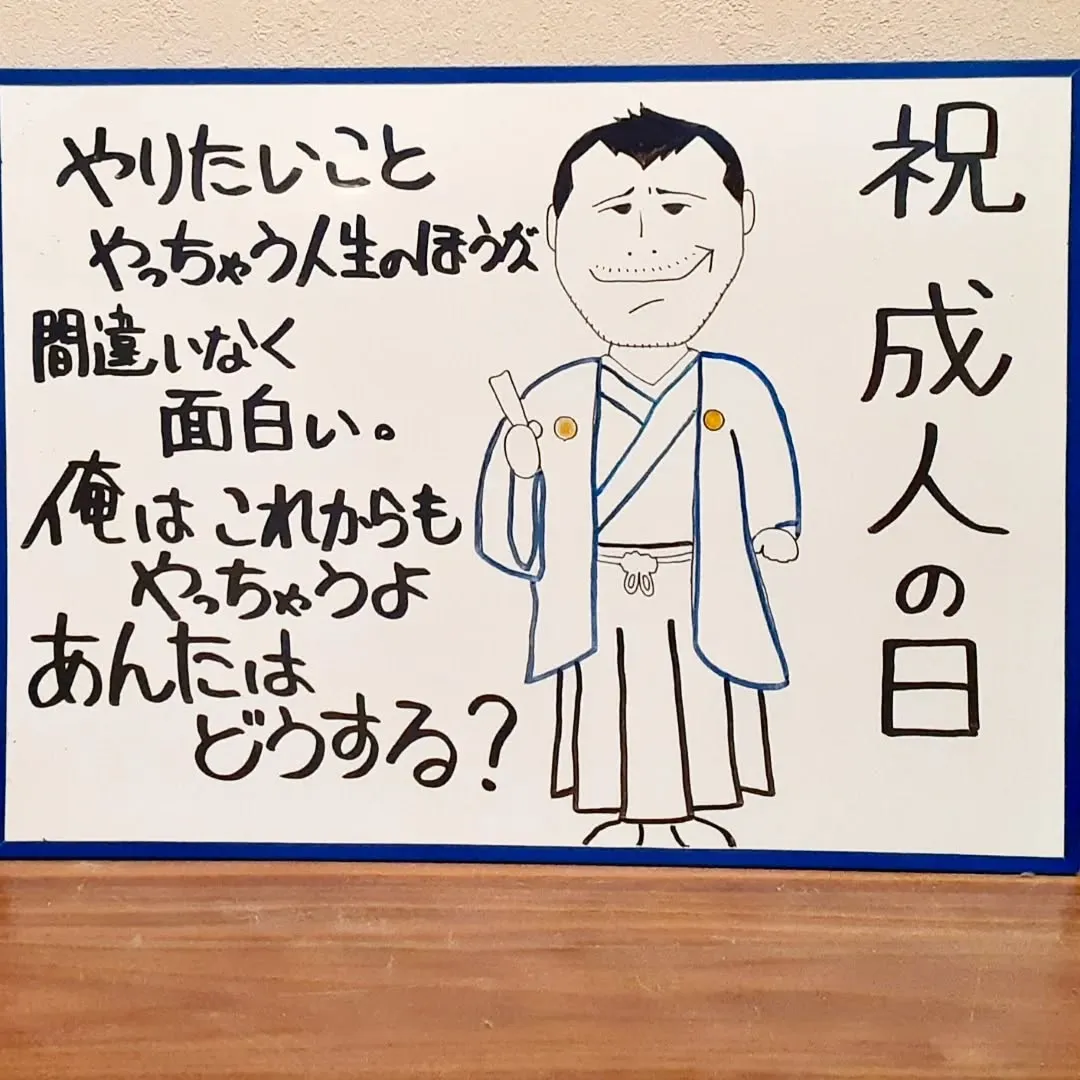 祝成人の日
やりたいこと
やっちゃう人生のほうが
間違いなく
面白い。
俺はこれからも
やっちゃうよ
あんたは
どうする?